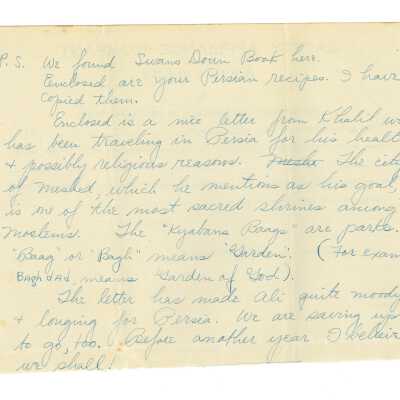 P.S. We found Swans Down Book here.
Enclosed are your Persian recipes. I have
copied them.
Enclosed is a nice letter from Khalil w
has been traveling in Persia for his healt
+ possibly religious reasons. The cit
of Meshed, which he mentions as his goal,
is one of the most sacred shrines among
Moslems. The "Kyabans Baags" are parks.
"Baag" or "Bagh" means "Garden". (For exam
Baghdad means "Garden of God.)
The letter has made Ali quite moody
+ longing for Persia. We are saving up
to go, too. Before another year I believ
we shall!